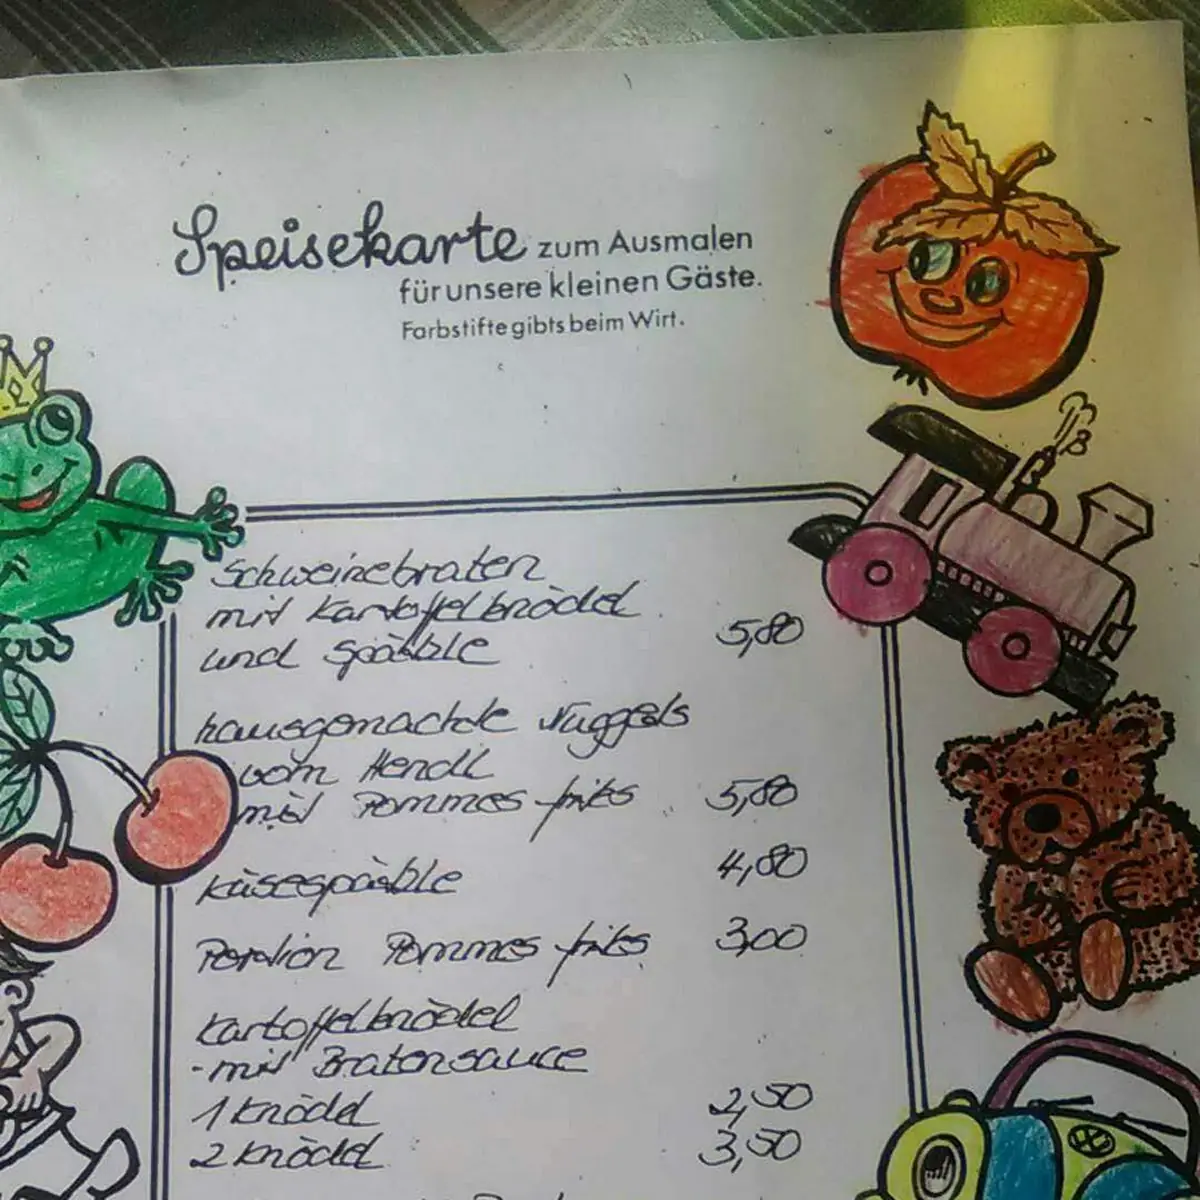 Speisekarte zum Ausmalen
für unsere kleinen Gäste.
Farbstifte gibts beim Wirt.
Schweinebraten
mit Kartoffelknödel
und Späßle 5,80
hausgemachte Nuggets
vom Hendl
mit Pommes frites 5,80
Käsespäßle 4,80
Portion Pommes frites 3,00
Kartoffelknödel
- mit Bratensauce
1 Knödel 2,50
2 Knödel 3,50